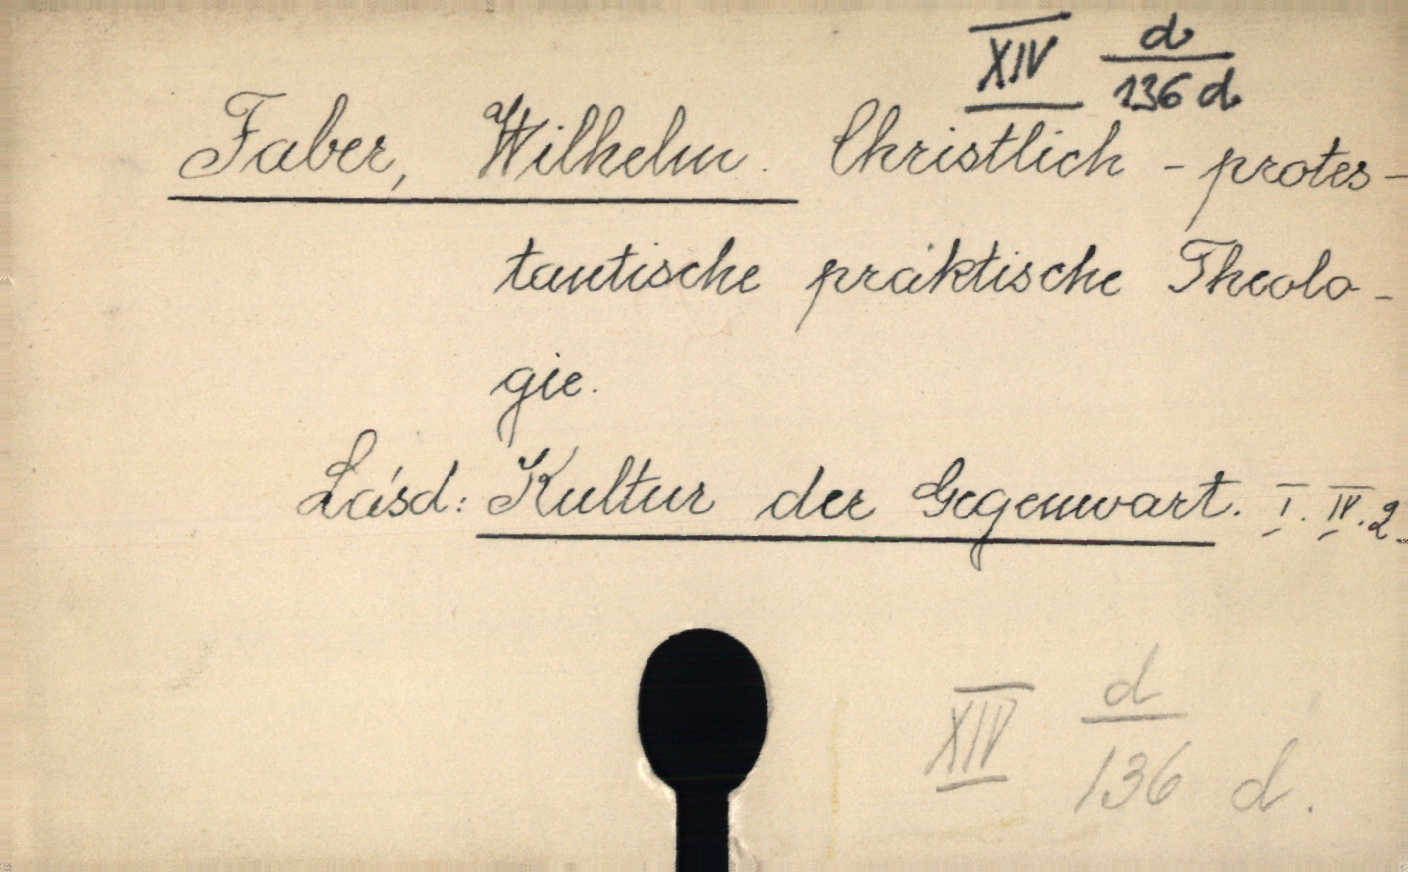 XIV d/136 d
Faber, Wilhelm. Christlich - protes-
tantische praktische Theolo-
gie.
Lásd: Kultur der Gegenwart. I. IV. 2.
XIV d/136 d.